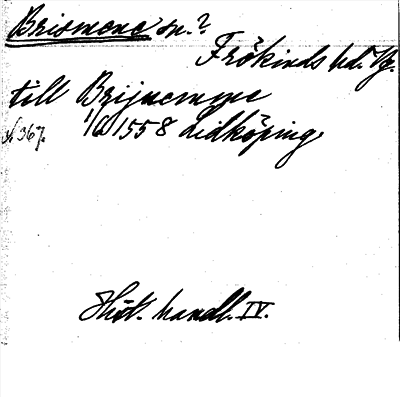 Brismene sn.?
Frökinds hd. Vg.
till Brijnemyre
s. 367. 1/6 1558 Lidköping
Hist. handl. IV.